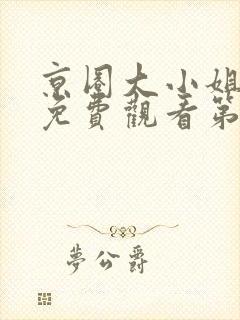 京圈大小姐
免費觀看第
夢公爵